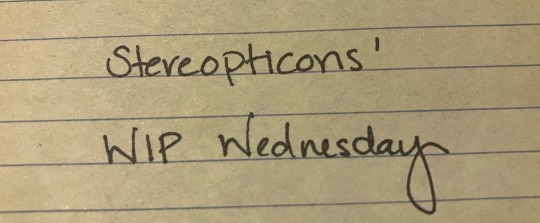 Stereopticons'
WIP Wednesday